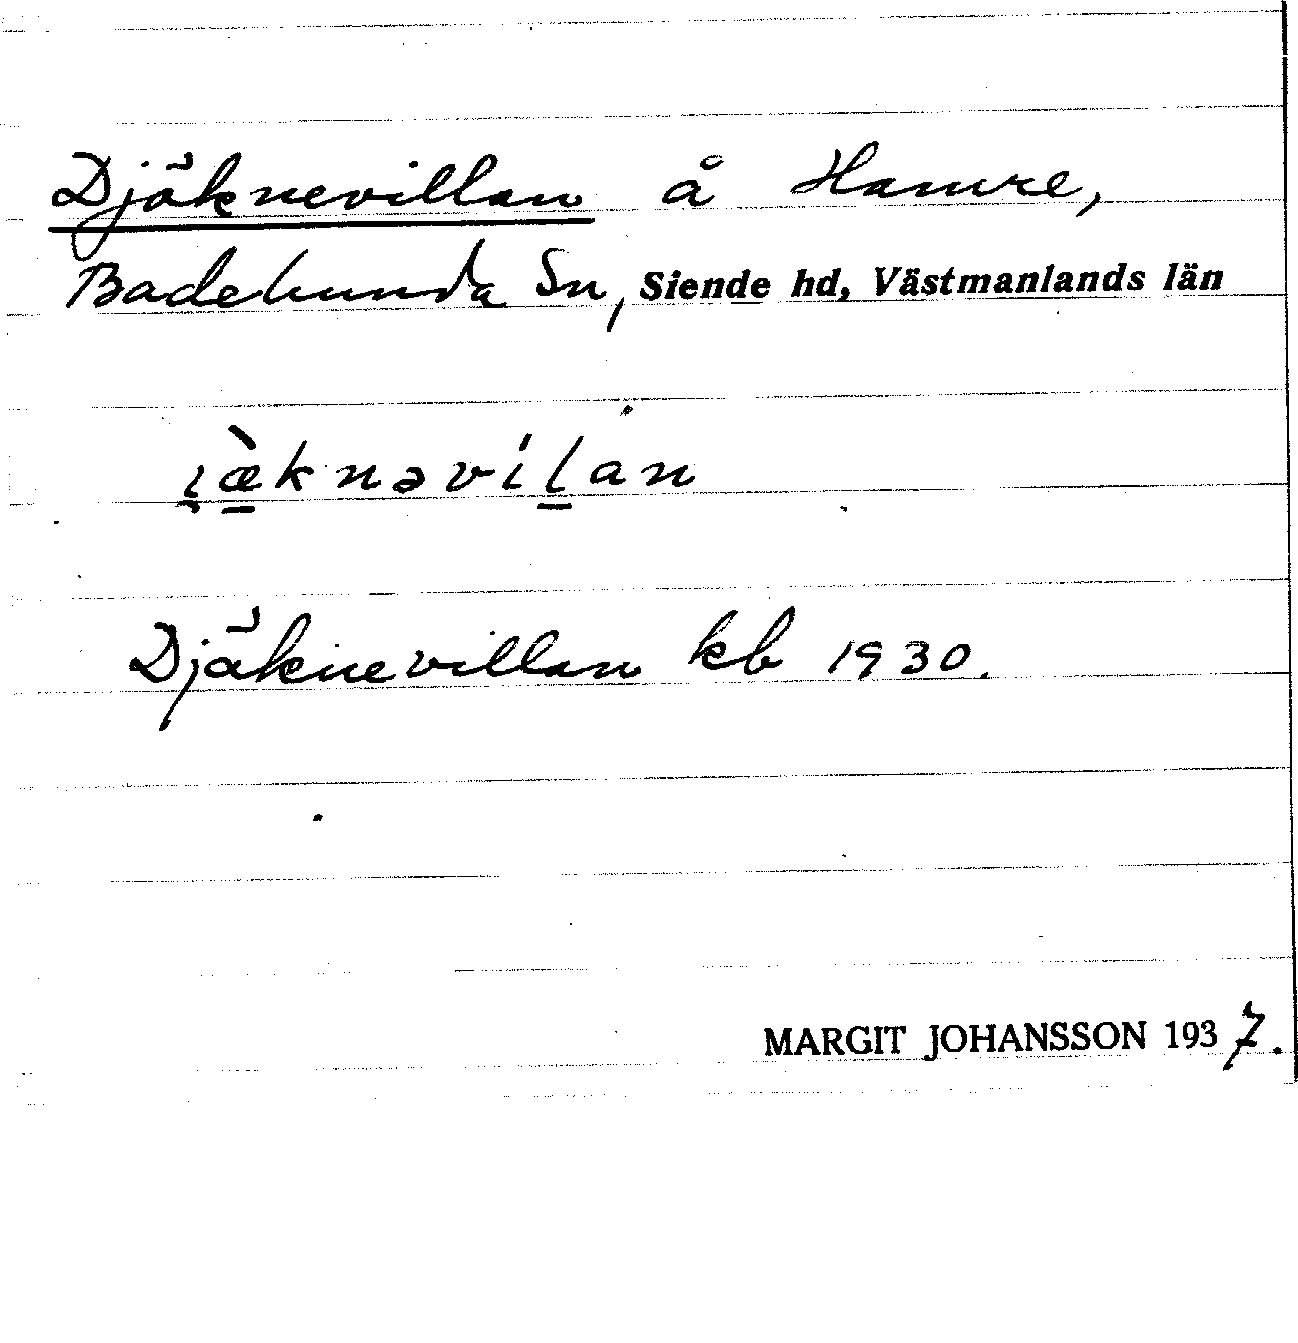 Djäknevillan å Hamre,
Badelunda Sn, Siende hd, Västmanlands län
i̯æ̀knəvílan
Djäknevillan kb 1930.
MARGIT JOHANSSON 1937.